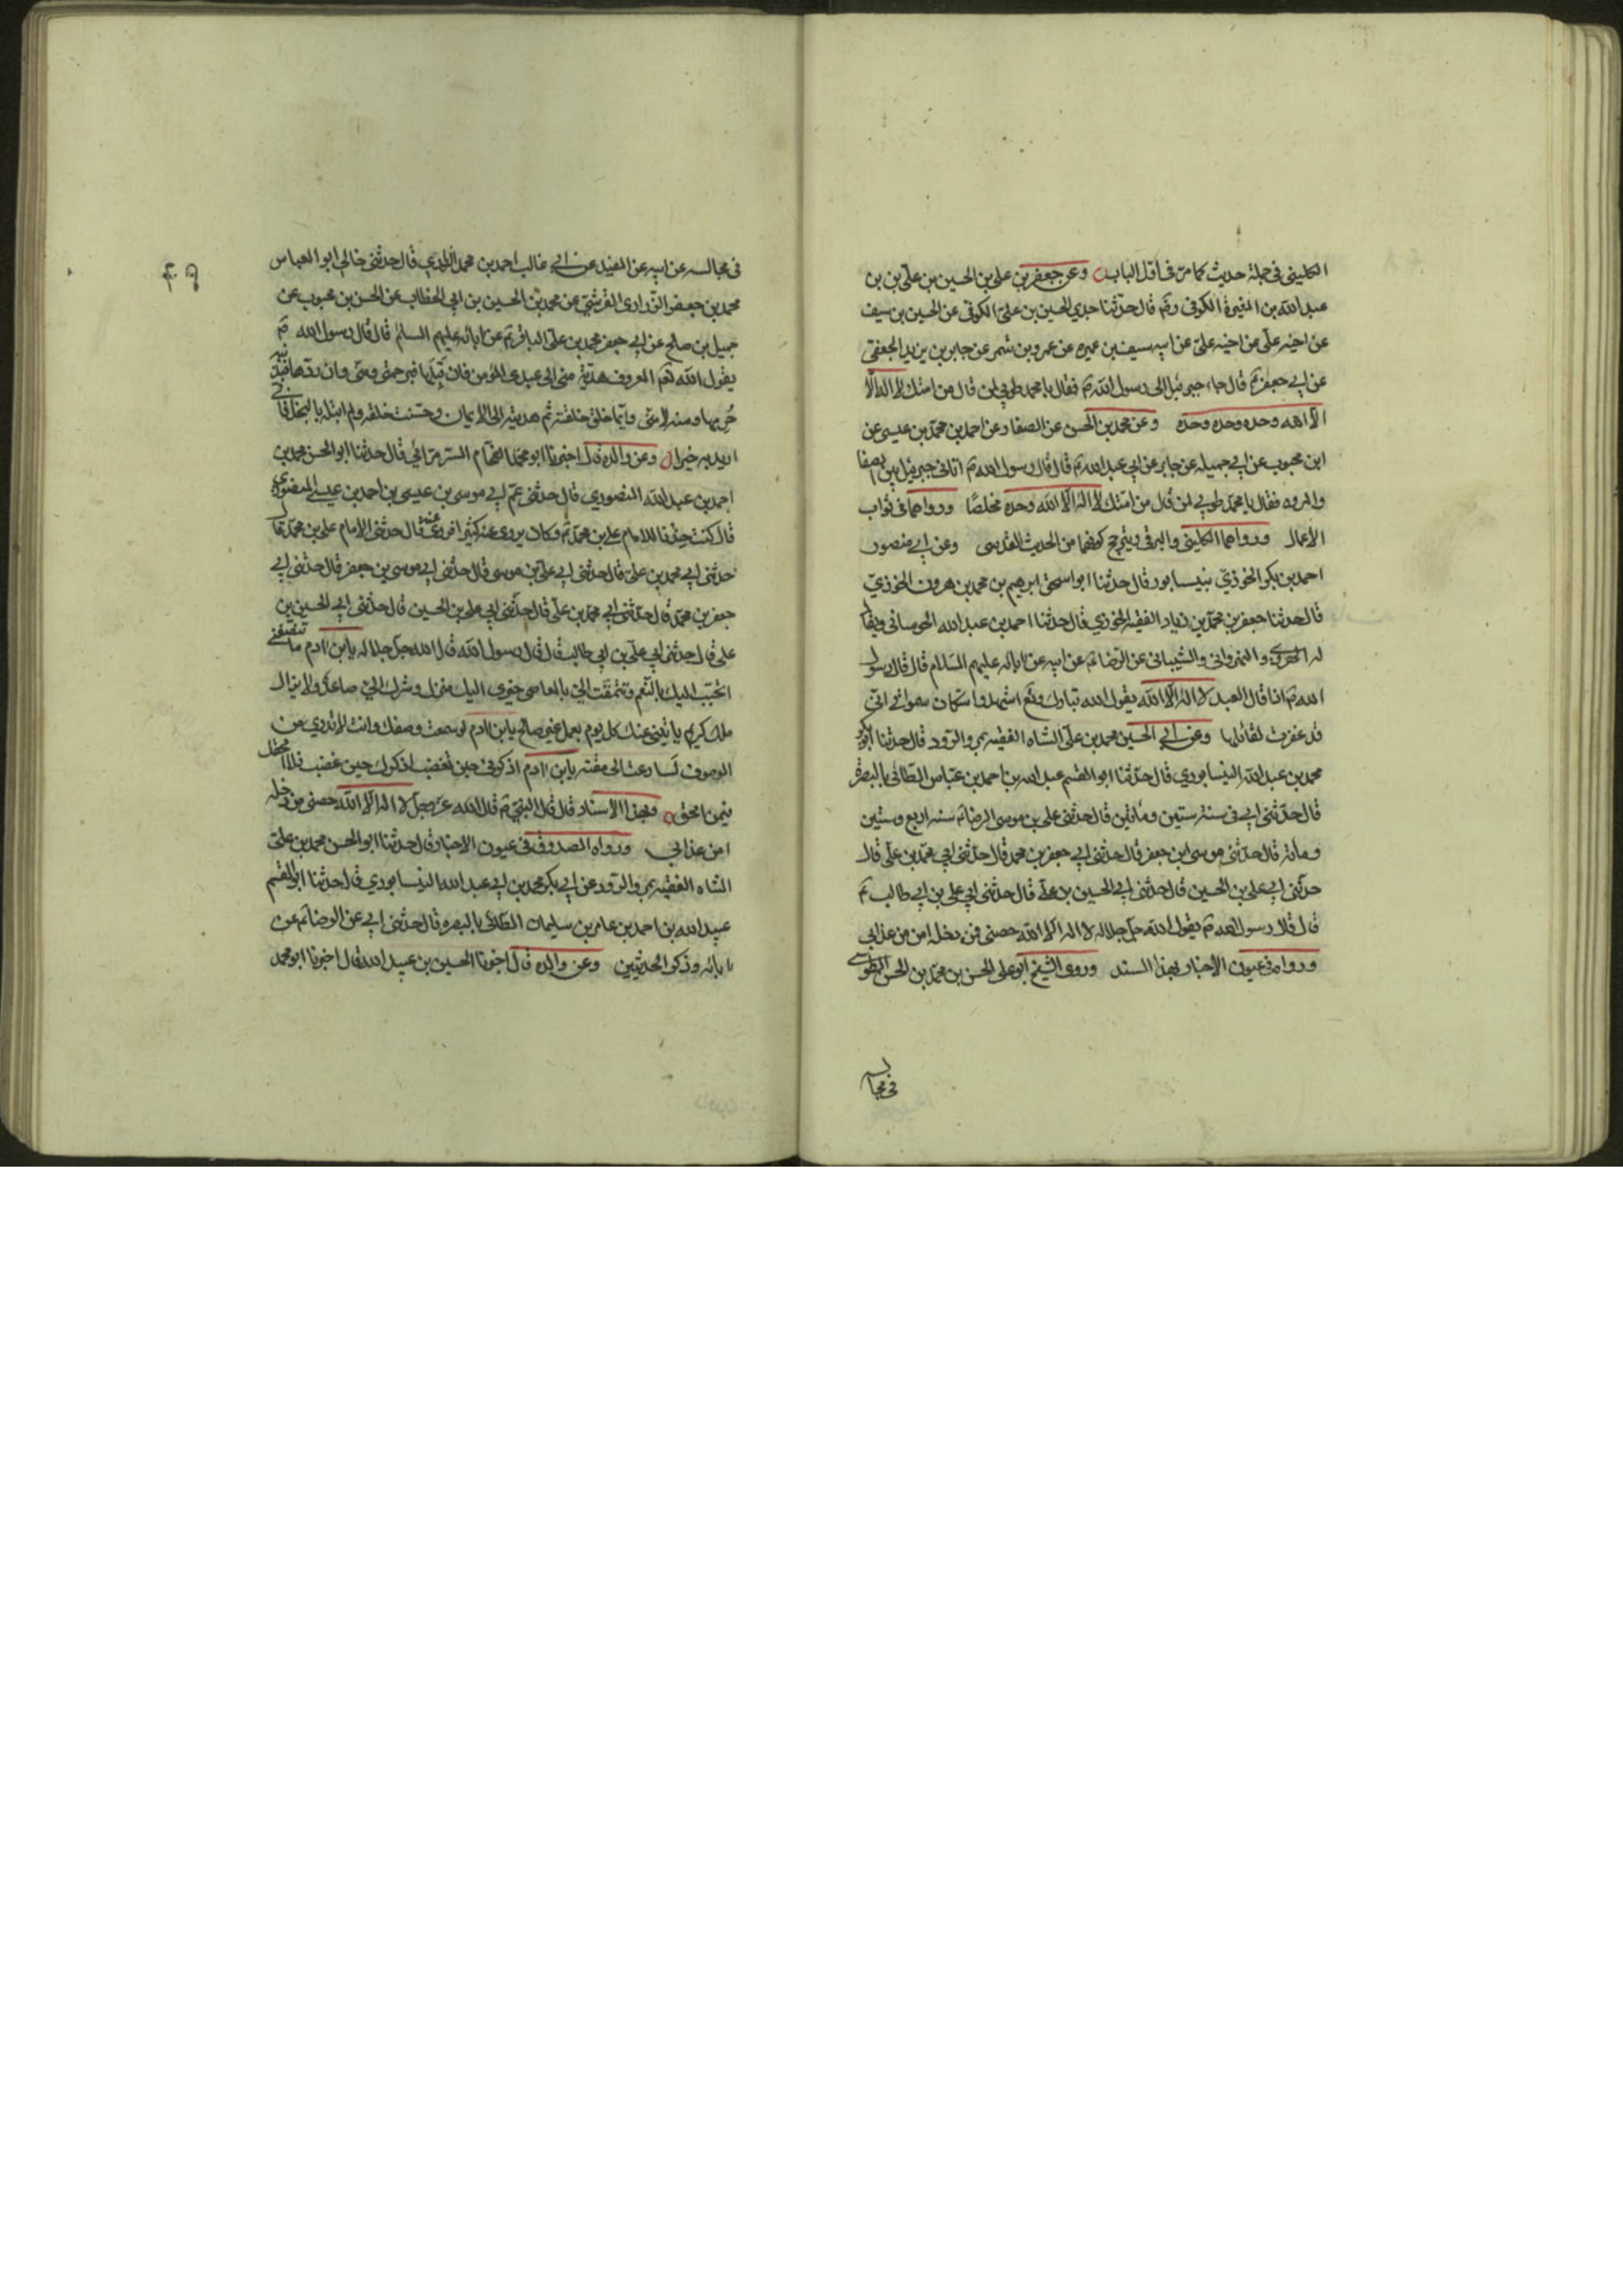 الكليني في جملة حديث كما مرّ في اوّل الباب وعن جعفر بن علي بن الحسين بن عليّ بن
عبد الله بن المغيرة الكوفي قال حدّثنا جدي الحسين بن عليّ الكوفي عن الحسين بن سيف
عن اخيه عليّ عن ابيه سيف بن عميره عن عمرو بن شمر عن جابر بن يزيد الجعفي
عن ابي جعفر ع قال جاء جبرئيل الى رسول الله ص فقال يا محمد طوبى لمن قال من امتك لا اله الّا
الّا الله وحده وحده وحده وعن محمد بن الحسن عن الصفار عن احمد بن محمّد بن عيسى عن
ابن محبوب عن ابي جميله عن جابر عن ابي عبد الله ع قال قال رسول الله ص اتاني جبرئيل بين الصفا
والمروه فقال يا محمّد طوبى لمن قال من امتك لا اله الّا الله وحده مخلصًا ورواهما في ثواب
الاعمال ورواهما الكليني والبرقي ويترجح كونهما من الحديث القدسى وعن ابي منصور
احمد بن بكر الخوذيّ بنيسابور قال حدثنا ابو اسحق ابرهيم بن محمد بن هرون الخوذيّ
قال حدثنا جعفر بن محمّد بن زياد الفقيه الخوذي قال حدثنا احمد بن عبد الله الجويباني ويقال
له الهروي والنهرواني والشيباني عن الرّضا ع عن ابيه عن ابائه عليهم السّلام قال قال رسول
الله ص اذا قال العبد لا اله الّا الله يقول الله تبارك وتع اشهدوا سكان سمواتي انّي
قد غفرت لقائلها وعن ابي الحسين محمد بن عليّ الشاه الفقيه بمرو الرّود قال حدثنا ابو بكر
محمد بن عبد الله النيسابوري قال حدّثنا ابو القسم عبد الله بن احمد بن عبّاس الطائي بالبصرة
قال حدّثني ابي في سنة ستين ومأتين قال حدثني علي بن موسى الرضا ع سنه اربع وستين
ومائة قال حدّثني موسى ابن جعفر قال حدثني ابي جعفر بن محمد قال حدّثني ابي محمّد بن عليّ قال
حدّثني ابي علي بن الحسين قال حدثني ابي الحسين بن علي قال حدثني ابي علي بن ابي طالب ع
قال قال رسول الله ص يقول الله جلّ جلاله لا اله الّا الله حصني فمن دخله امن من عذابي
ورواه في عيون الاخبار بهذا السند وروى الشيخ ابو علي الحسن بن محمّد بن الحسن الطوسي
في مجالسه
في مجالسه عن ابيه عن المفيد عن ابي غالب احمد بن محمد الزراري قال حدثني خالي ابو العباس
محمد بن جعفر الزّراري القرشيّ عن محمد بن الحسين بن ابي الخطاب عن الحسن بن محبوب عن
جميل بن صالح عن ابي جعفر محمد بن عليّ الباقر ع عن ابائه عليهم السلم قال قال رسول الله ص
يقول الله تعم المعروف هديّة منّي الى عبدي المؤمن فان قَبِلَها فبرحمتي ومنّي وان ردّها فبذنبه
حُرِمها ومنه لا منّي وايّما خلق خلقته ثم هديته الى الايمان وحسّنت خلقه ولم ابتله بالبخل فاني
اريد به خيرا وعن والده قال اخبرنا ابو محمّد الفحّام السرّمرّائي قال حدثنا ابو الحسن محمد بن
احمد بن عبد الله المنصوري قال حدثني عمّ ابي موسى بن عيسى بن احمد بن عيسى المنصوري
قال كنت خدنا للامام علي بن محمّد ع وكان يروي عنه كثيرا فروى عنه قال حدثني الامام علي بن محمّد قال
حدثني ابي محمد بن عليّ قال حدثني ابي عليّ بن موسى قال حدّثني ابي موسى بن جعفر قال حدثني ابي
جعفر بن محمّد قال حدّثني ابي محمّد بن عليّ قال حدّثني ابي علي بن الحسين قال حدّثني ابي الحسين بن
علي قال حدثني ابي عليّ بن ابي طالب قال قال رسول الله قال الله جلّ جلاله يا ابن ادم ما تنصفني
اتحبّب اليك بالنّعم وتتمقّت اليّ بالمعاصي خيري اليك منزل وشرك اليّ صاعد ولا يزال
ملك كريم يأتيني عنك كل يوم بعمل غير صالح يا ابن ادم لو سمعت وصفك وانت لا تدري من
الموصوف لسارعت الى مقته يا ابن ادم اذكرني حين تغضب اذكرك حين غضب فلا امحقك
فيمن امحق وبهذا الاسناد قال قال النبيّ ص قال الله عزّ وجلّ لا اله الّا الله حصني من دخله
امن عذابي ورواه الصدوق في عيون الاخبار قال حدثنا ابو الحسن محمد بن عليّ
الشاه الفقيه بمرو الرّود عن ابي بكر محمد بن ابي عبد الله النيسابوري قال حدثنا ابو القسم
عبيد الله بن احمد بن عامر بن سليمان الطّائي بالبصره قال حدثني ابي عن الرضا ع عن
ابائه وذكر الحديثين وعن والده قال اخبرنا الحسين بن عبيد الله قال اخبرنا ابو محمد